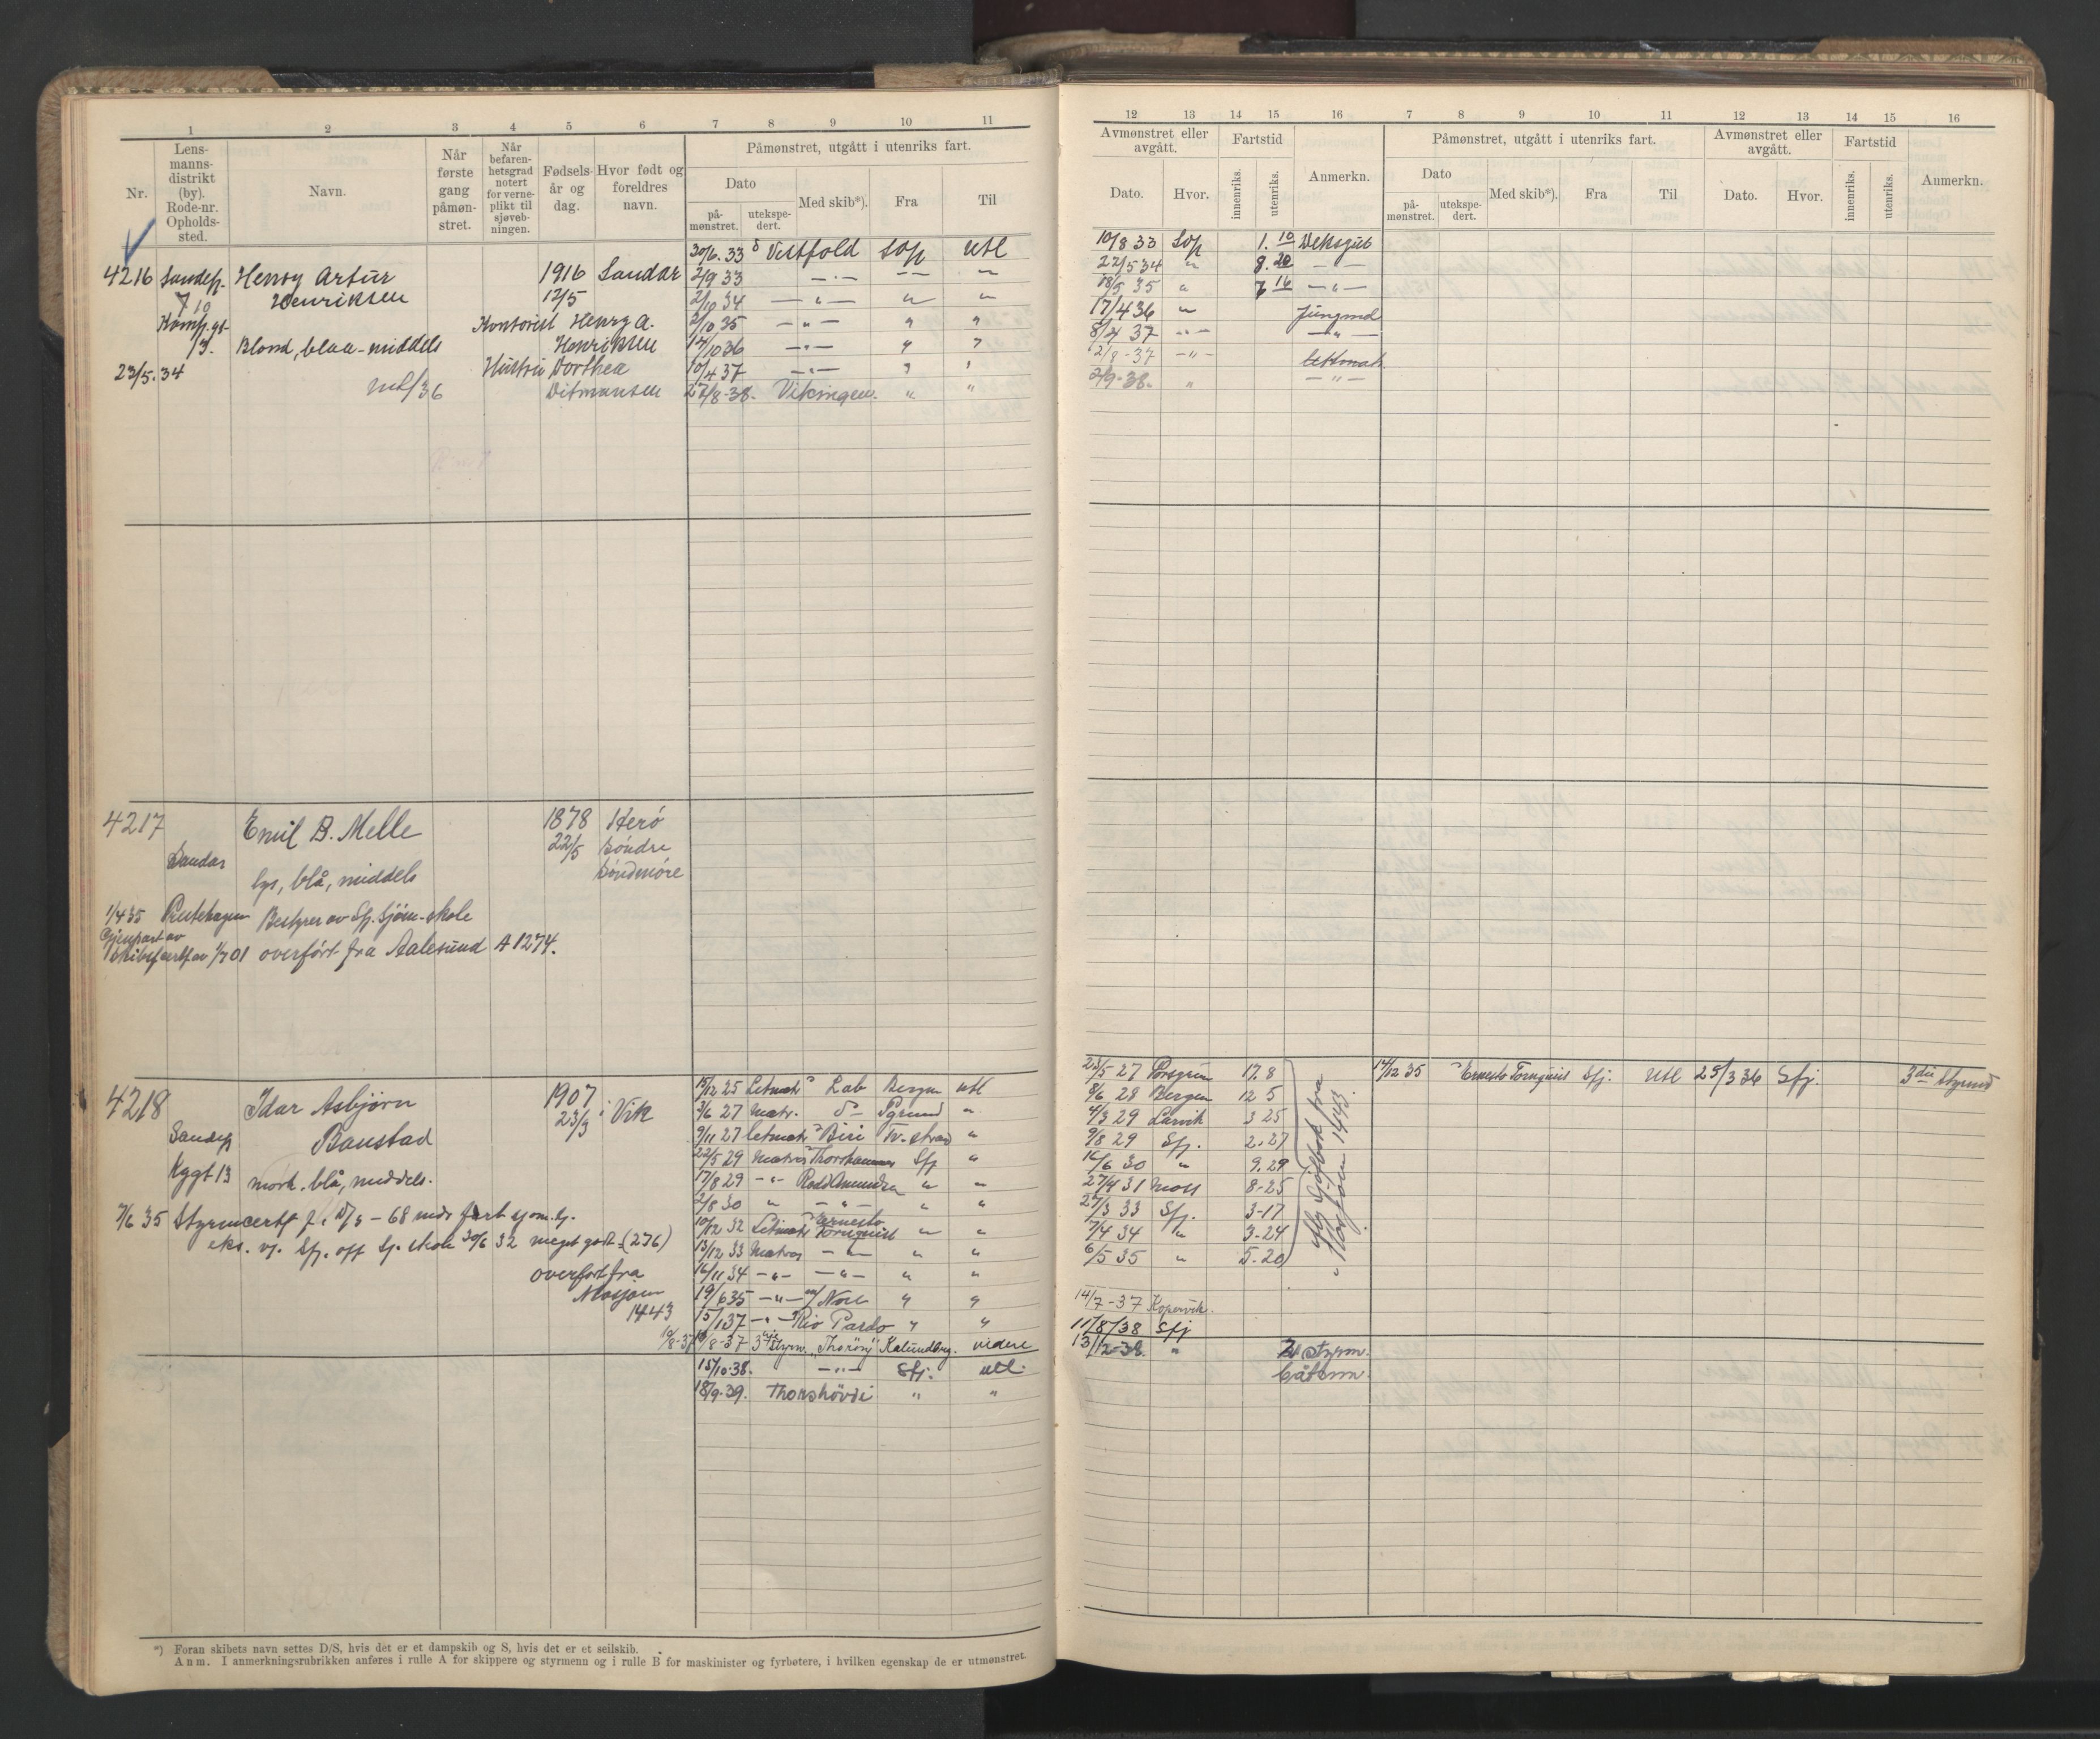 1 2 3 4 5 6 7 8 9 10 11
Nr.
Lens-
manns-
distrikt
(by).
Rode-nr.
Opholds-
sted.
Navn.
Når
første
gang
påmøn-
stret.
Når
befaren-
hetsgrad
notert
for verne-
plikt til
sjøveb-
ningen.
Fødsels-
år og
dag.
Hvor født og
foreldres
navn.
Påmønstret, utgått i utenriks fart.
Dato
på-
mønstret.
utekspe-
dert.
Med skib*).
Fra
Til
4216 Sandefj. Henry Artur 1916 Sandar 30/6.33 Vestfold Sfj utl
7 10 Henriksen 12/5 2/9 33
Kontorist Henry A. 2/10 34
Blond, blaa - middels Henriksen 2/10 35
23/5.34 Hustru Dorthea 10/4 37
Ditmansen 27/8-38. Vikingen. " "
4217 Emil B. Melle 1878 Herø
Sandar 22/5 søndre
lys, blå, middels Søndmøre
1/4 35 Prestehagen Bestyrer av Sfj. Sjøm-skole
Gjenpart av
overført fra Aalesund A 1274.
4218 Idar Asbjørn 1907 Vik
Baustad 23/9
Sandefj
mørk, blå, middels.
15/12 25 Letmatr Lab Bergen utl
3/6 27 Matr. Pgrund "
9/11 27 Letmatr Biri Tv.strand "
22/5 29 Matros Thorshammer Sfj "
17/8 29 Roald Amundsen " "
2/8 30 " " " "
10/12 32 Letmatr Ernesto Tornquist " "
13/12 33 Matros " "
16/11 34 " "
19/6 35 Nore " "
15/1 37 Rio Pardo " "
7/6 35 Styrmcertf f. D/s - 68 mdr fart
30/6 32 meget godt (276)
overført fra
Mosjøen
1443
8-37 3die Styrm. "Thorøn" Kalundborg. videre
15/10-38. Sfj. utl.
18/9-39. Thorshövdi " "
*) Foran skibets navn settes D/S, hvis det er et dampskib og S, hvis det er et seilskib.
Anm. I anmerkningsrubrikken anføres i rulle A for skippere og styrmenn og i rulle B for maskinister og fyrbøtere, i hvilken egenskap de er utmønstret.
12 13 14 15 16 7 8 9 10 11 12 13 14 15 16
Avmønstret eller
avgått.
Dato.
Hvor.
Fartstid
innenriks.
utenriks.
Anmerkn.
Påmønstret, utgått i utenriks fart.
Dato
på-
mønstret.
utekspe-
dert.
Med skib*).
Fra
Til
Avmønstret eller
avgått.
Dato.
Hvor.
Fartstid
innenriks.
utenriks.
Anmerkn.
10/8 33 Sfj 1. 10 Deksgut
22/5 34 " 8. 20
18/5 35 " 7 16
17/4 36 " Jungmd
8/4 37
2/8-37 Lettmatr
2/9-38. "
23/5 27 Porsgrun 17. 8
8/6 28 Bergen 12 5
4/3 29 Larvik 3 25
9/8 29 Sfj. 2. 27
16/6 30 " 9. 29
27/4 31 Moss 8-25
27/3 33 Sfj. 3-17
7/4 34 " 3-24
6/5 35 " 5. 20
iflg Sjøfbok fra
Mosjøen 1443.
14/12 35 Ernesto Tornquist Sfj. Utl 25/3 36 Sfj. 3die Styrmd
14/7-37 Kopervik.
11/8/38 Sfj
13/12-38. " 2 styrm.
båtsm.